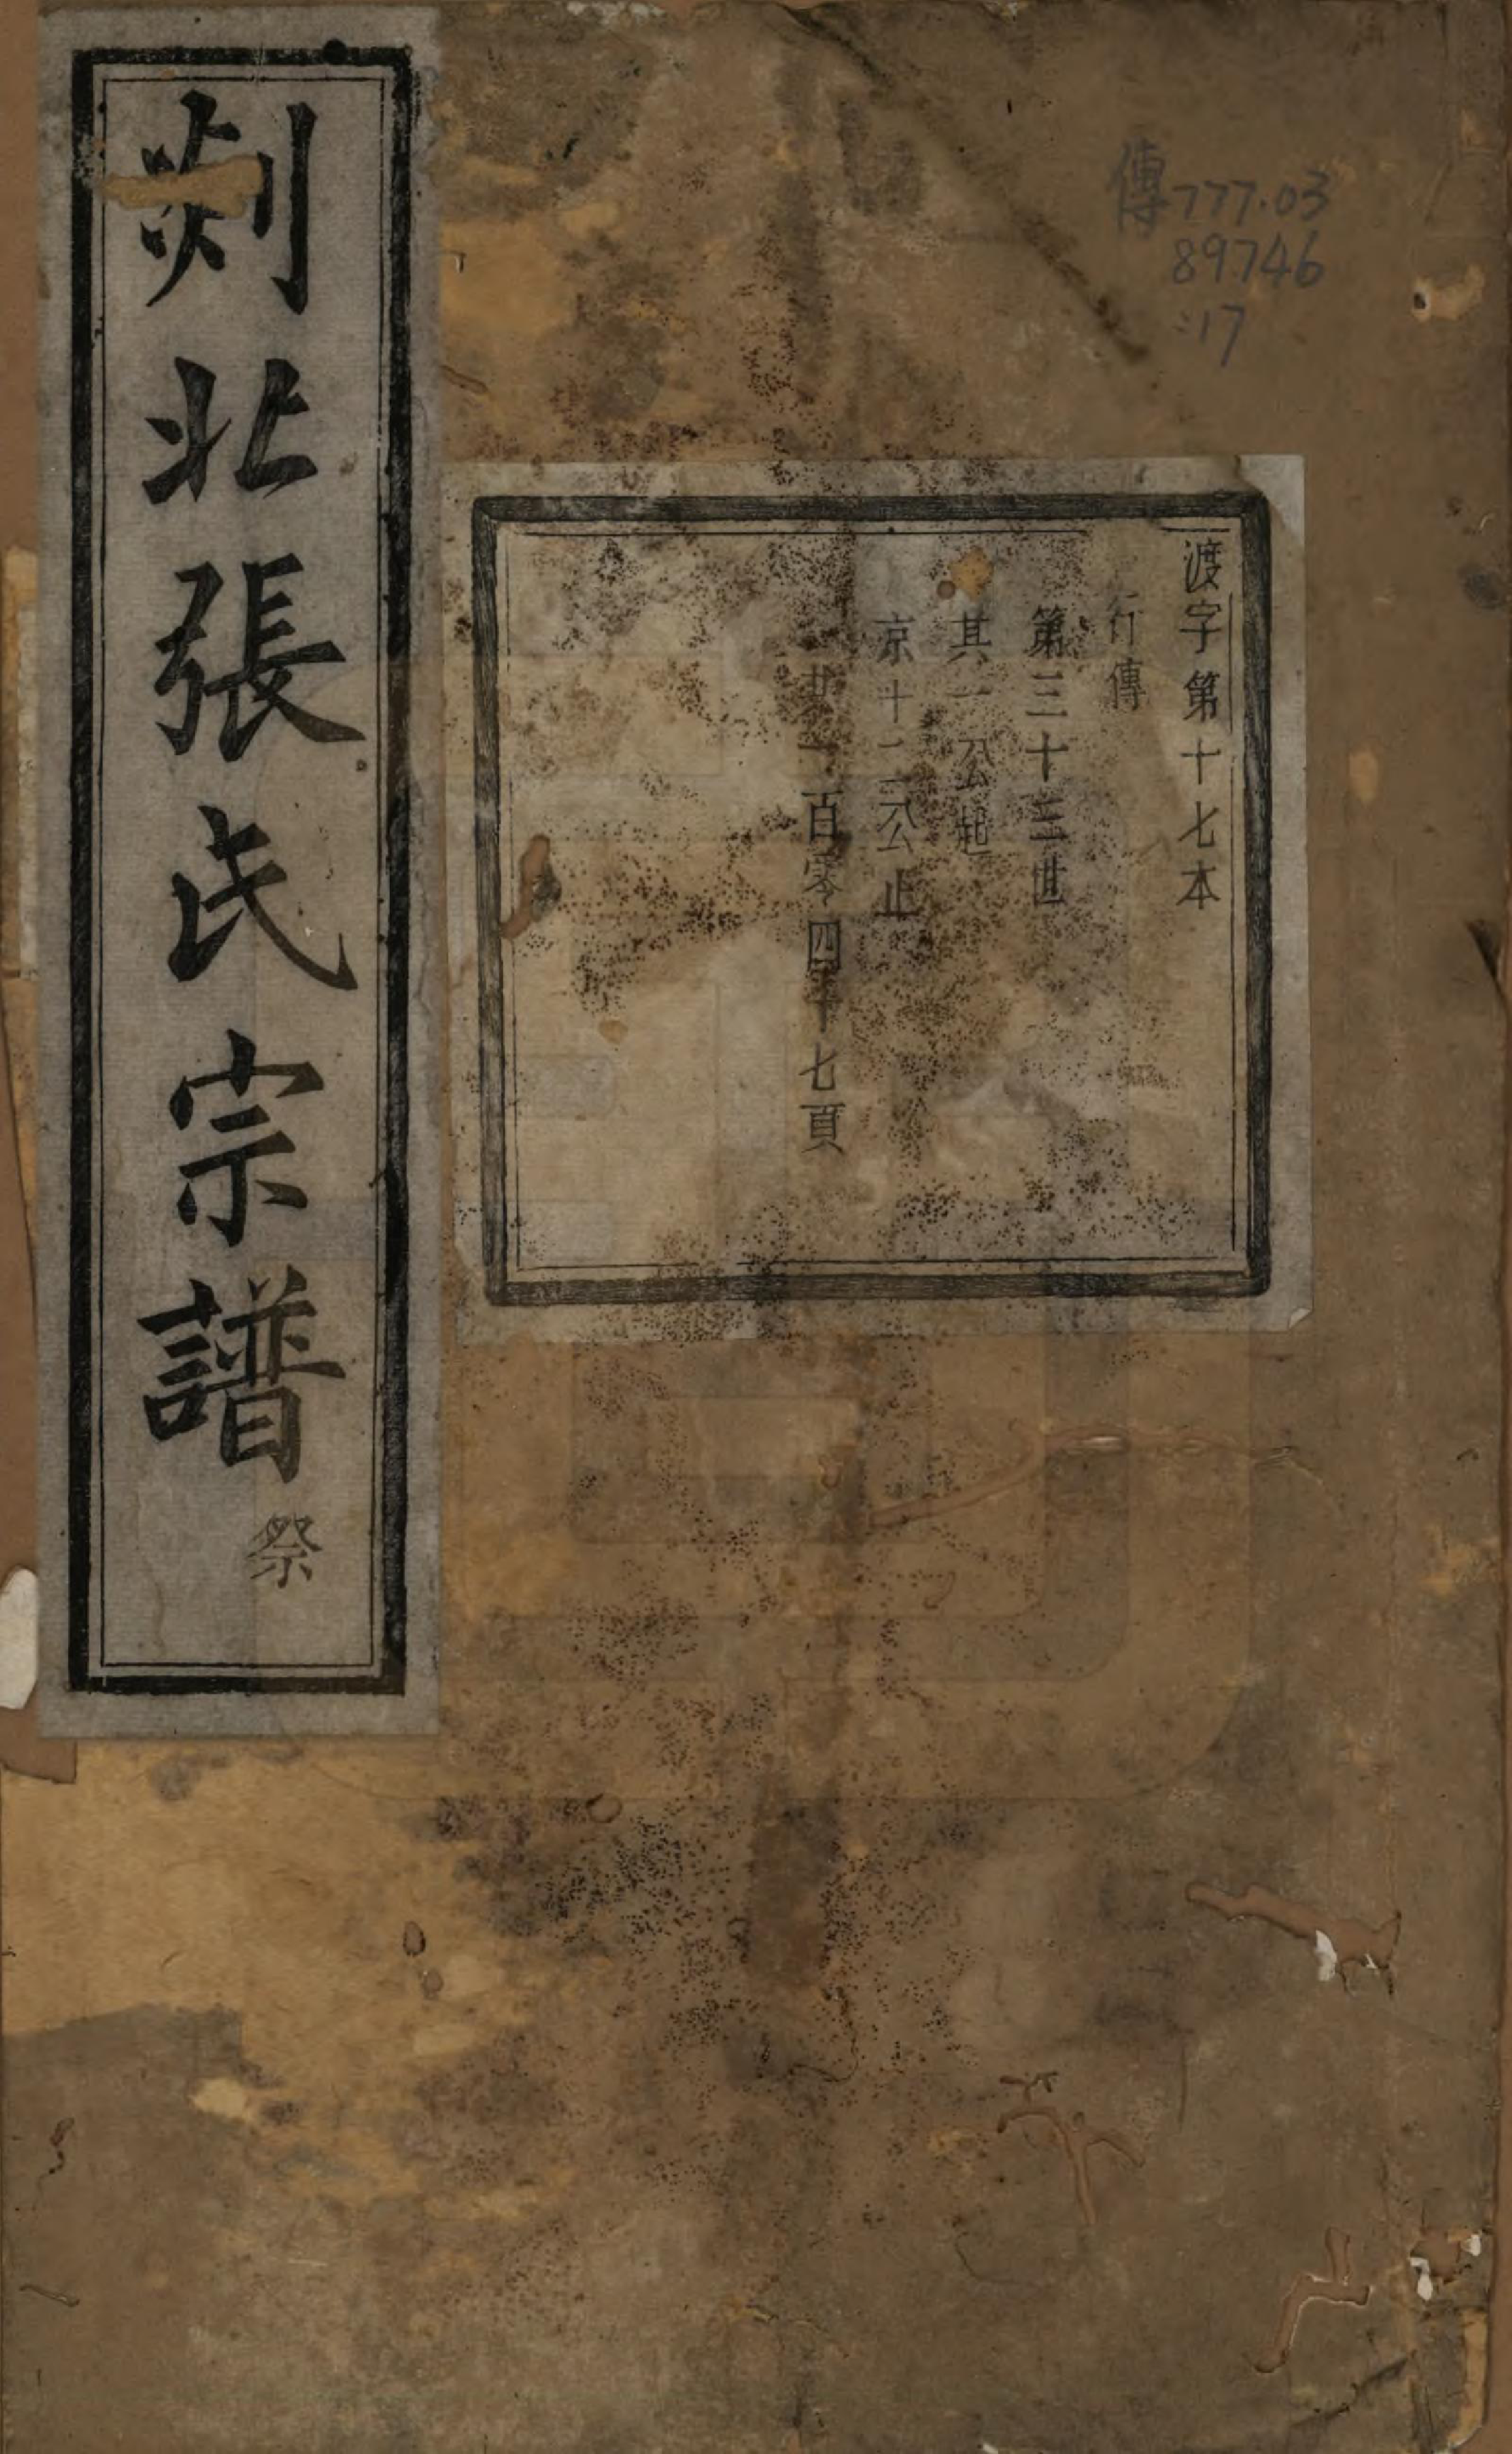 傳777.03
89746
:17
渡字第十七本
行傳
第三十三世
其一公起
京十二公止
共一百零四十七頁
剡北張氏宗譜
祭